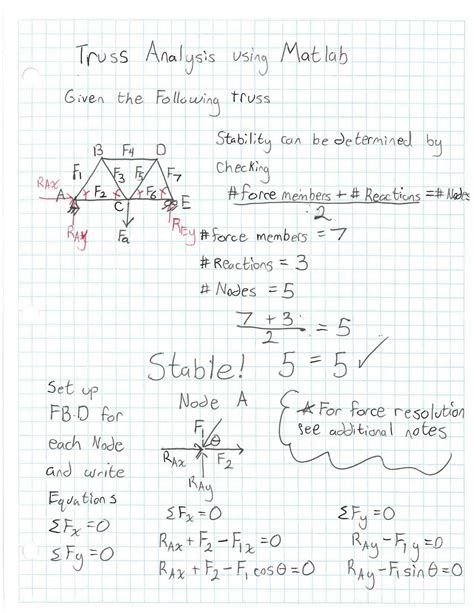 Truss Analysis using Matlab
Given the Following truss
B F4 D
F1 F3 F5 F7
RAx A F2 F6 E
C
RAy Fa REy
Stability can be determined by
checking
#force members + # Reactions = # Nodes
2
#force members = 7
# Reactions = 3
# Nodes = 5
7 + 3 = 5
2
Stable! 5 = 5 ✓
Set up
FBD for
each Node
and write
Equations
ΣFx = 0
ΣFy = 0
Node A
F1 θ
RAx F2
RAy
* For force resolution
see additional notes
ΣFx = 0
RAx + F2 - F1x = 0
RAx + F2 - F1 cosθ = 0
ΣFy = 0
RAy - F1y = 0
RAy - F1 sinθ = 0